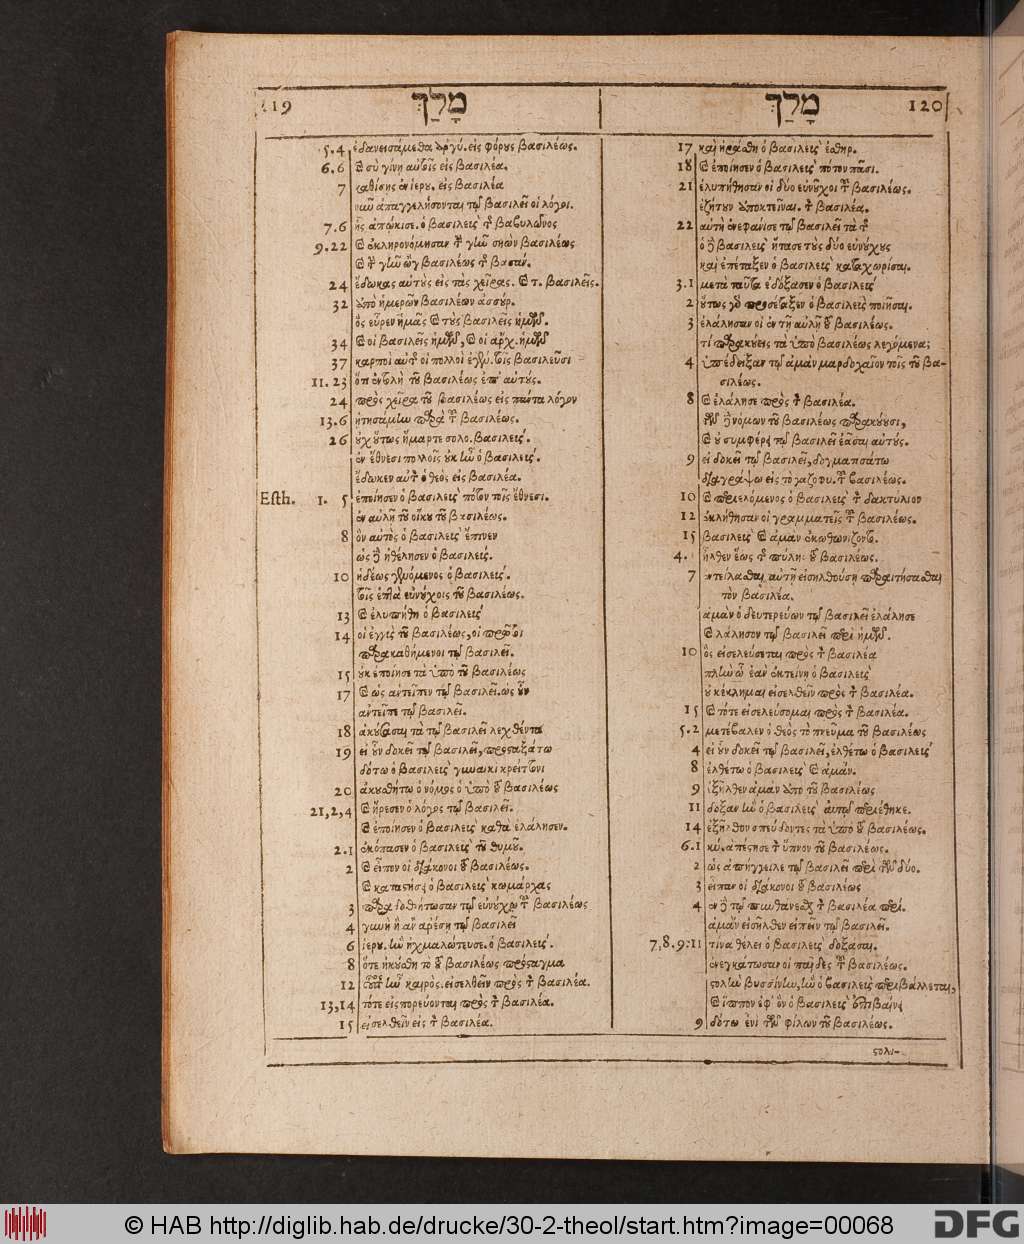 119 מָלַךְ
5.4 ἐδανεισάμεθα ἀργύ. εἰς φόρους βασιλέως.
6.6 καὶ σὺ γίνῃ αὐτοῖς εἰς βασιλέα.
7 καθίσῃς ἐν ἱερου. εἰς βασιλέα
νῦν ἀπαγγελήσονται τῷ βασιλεῖ οἱ λόγοι.
7.6 ἧς ἀπῴκισε. ὁ βασιλεὺς τῆς βαβυλῶνος
9.22 καὶ ἐκληρονόμησαν τὴν γῆν σηὼν βασιλέως
καὶ τὴν γῆν ὢγ βασιλέως τοῦ βασάν.
24 ἔδωκας αὐτοὺς εἰς τὰς χεῖρας. καὶ τ. βασιλεῖς.
32 ὑπὸ ἡμερῶν βασιλέων ἀσσύρ.
ὃς εὗρεν ἡμᾶς καὶ τοὺς βασιλεῖς ἡμῶν.
34 καὶ οἱ βασιλεῖς ἡμῶν, καὶ οἱ ἄρχ. ἡμῶν
37 καρποὶ αὐτῆς οἱ πολλοὶ ἐγέν. τοῖς βασιλεῦσι
11.23 ὅτι ἐντολὴ τοῦ βασιλέως ἐπ' αὐτούς.
24 πρὸς χεῖρα τοῦ βασιλέως εἰς πάντα λόγον
13.6 ᾐτησάμην παρὰ τοῦ βασιλέως.
26 οὐχ οὕτως ἥμαρτε σολο. βασιλεύς.
ἐν ἔθνεσι πολλοῖς οὐκ ἦν ὁ βασιλεύς.
ἔδωκεν αὐτὸν ὁ θεὸς εἰς βασιλέα.
Esth. 1. 5 ἐποίησεν ὁ βασιλεὺς πότον τοῖς ἔθνεσι.
ἐν αὐλῇ τοῦ οἴκου τοῦ βασιλέως.
8 ὃν αὐτὸς ὁ βασιλεὺς ἔπινεν
ὡς δὲ ἠθέλησεν ὁ βασιλεύς.
10 ἡδέως γενόμενος ὁ βασιλεύς.
τοῖς ἑπτὰ εὐνούχοις τοῦ βασιλέως.
13 καὶ ἐλυπήθη ὁ βασιλεὺς
14 οἱ ἐγγὺς τοῦ βασιλέως, οἱ πρῶτοι
παρακαθήμενοι τῷ βασιλεῖ.
15 οὐκ ἐποίησε τὰ ὑπὸ τοῦ βασιλέως
17 καὶ ὡς ἀντεῖπεν τῷ βασιλεῖ. ὡς οὖν
ἀντεῖπε τῷ βασιλεῖ.
18 ἀκούσασαι τὰ τῷ βασιλεῖ λεχθέντα
19 εἰ οὖν δοκεῖ τῷ βασιλεῖ, προσταξάτω
δότω ὁ βασιλεὺς γυναικὶ κρείττονι
20 ἀκουσθήτω ὁ νόμος ὁ ὑπὸ τοῦ βασιλέως
21,2,4 καὶ ἤρεσεν ὁ λόγος τῷ βασιλεῖ.
καὶ ἐποίησεν ὁ βασιλεὺς καθὰ ἐλάλησεν.
2.1 ἐκόπασεν ὁ βασιλεὺς τοῦ θυμοῦ.
2 καὶ εἶπον οἱ διάκονοι τοῦ βασιλέως.
καὶ καταστήσει ὁ βασιλεὺς κωμάρχας
3 παραδοθήτωσαν τῷ εὐνούχῳ τοῦ βασιλέως
4 γυνὴ ἣ ἂν ἀρέσῃ τῷ βασιλεῖ
6 ἱερου. ἣν ᾐχμαλώτευσε. ὁ βασιλεύς.
8 ὅτε ἠκούσθη τὸ τοῦ βασιλέως πρόσταγμα
12 οὗτος ἦν καιρὸς. εἰσελθεῖν πρὸς τὸν βασιλέα.
13,14 τότε εἰσπορεύονται πρὸς τὸν βασιλέα.
15 εἰσελθεῖν εἰς τὸν βασιλέα.
מָלַךְ 120
17 καὶ ἠράσθη ὁ βασιλεὺς ἐσθηρ.
18 καὶ ἐποίησεν ὁ βασιλεὺς πότον πᾶσι.
21 ἐλυπήθησαν οἱ δύο εὐνοῦχοι τοῦ βασιλέως.
ἐζήτουν ἀποκτεῖναι. τὸν βασιλέα.
22 αὐτὴ ἐνεφάνισε τῷ βασιλεῖ τὰ τῆς
ὁ δὲ βασιλεὺς ἤτασε τοὺς δύο εὐνούχους
καὶ ἐπέταξεν ὁ βασιλεὺς καταχωρίσαι.
3.1 μετὰ ταῦτα ἐδόξασεν ὁ βασιλεὺς
2 οὕτως γὰρ προσέταξεν ὁ βασιλεὺς ποιῆσαι.
3 ἐλάλησαν οἱ ἐν τῇ αὐλῇ τοῦ βασιλέως.
τί παρακούεις τὰ ὑπὸ βασιλέως λεγόμενα;
4 ὑπέδειξαν τῷ ἀμὰν μαρδοχαῖον τοῖς τοῦ βα-
σιλέως.
8 καὶ ἐλάλησε πρὸς τὸν βασιλέα.
τῶν δὲ νόμων τοῦ βασιλέως παρακούουσι,
καὶ οὐ συμφέρει τῷ βασιλεῖ ἐᾶσαι αὐτούς.
9 εἰ δοκεῖ τῷ βασιλεῖ, δογματισάτω
διαγράψω εἰς τὸ γαζοφυ. τοῦ βασιλέως.
10 καὶ περιελόμενος ὁ βασιλεὺς τὸν δακτύλιον
12 ἐκλήθησαν οἱ γραμματεῖς τοῦ βασιλέως.
15 βασιλεὺς καὶ ἀμὰν ἐκωθωνίζοντο.
4. ἦλθεν ἕως τῆς πύλης τοῦ βασιλέως.
7 ἐντείλασθαι αὐτῇ εἰσελθούσῃ παραιτήσασθαι
τὸν βασιλέα.
ἀμὰν ὁ δευτερεύων τῷ βασιλεῖ ἐλάλησε
καὶ λάλησον τῷ βασιλεῖ περὶ ἡμῶν.
10 ὃς εἰσελεύσεται πρὸς τὸν βασιλέα
πλὴν ᾧ ἐὰν ἐκτείνῃ ὁ βασιλεὺς
οὐ κέκλημαι εἰσελθεῖν πρὸς τὸν βασιλέα.
15 καὶ τότε εἰσελεύσομαι πρὸς τὸν βασιλέα.
5.2 μετέβαλεν ὁ θεὸς τὸ πνεῦμα τοῦ βασιλέως
4 εἰ οὖν δοκεῖ τῷ βασιλεῖ, ἐλθέτω ὁ βασιλεὺς
8 ἐλθέτω ὁ βασιλεὺς καὶ ἀμάν.
9 ἐξῆλθεν ἀμὰν ἀπὸ τοῦ βασιλέως
11 δόξαν ἣν ὁ βασιλεὺς αὐτῷ περιέθηκε.
14 ἐξῆλθον σπεύδοντες τὰ ὑπὸ τοῦ βασιλέως.
6.1 κύ. ἀπέστησε τὸν ὕπνον τοῦ βασιλέως.
2 ὡς ἀπήγγειλε τῷ βασιλεῖ περὶ τῶν δύο.
3 εἶπαν οἱ διάκονοι τοῦ βασιλέως
4 ἐν δὲ τῷ πυνθάνεσθαι τὸν βασιλέα περὶ.
ἀμὰν εἰσῆλθεν εἰπεῖν τῷ βασιλεῖ.
7,8.9:11 τίνα θέλει ὁ βασιλεὺς δοξάσαι.
ἐνεγκάτωσαν οἱ παῖδες τοῦ βασιλέως.
στολὴν βυσσίνην, ἣν ὁ βασιλεὺς περιβάλλεται,
καὶ ἵππον ἐφ' ὃν ὁ βασιλεὺς ἐπιβαίνει
9 δότω ἑνὶ τῶν φίλων τοῦ βασιλέως.
στολι-
© HAB http://diglib.hab.de/drucke/30-2-theol/start.htm?image=00068
DFG